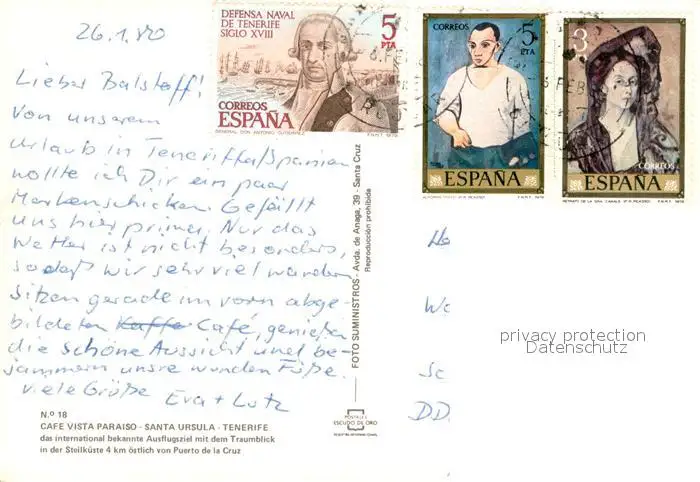 26.1.80
Lieber Balstoff!
Von unserem
Urlaub in Teneriffa/Spanien
wollte ich Dir ein paar
Marken schicken. Gefällt
uns hier prima. Nur das
Wetter ist nicht besonders,
sodaß wir sehr viel wandern
Sitzen gerade im vorn abge-
bildeten Kaffe Café, genießen
die schöne Aussicht und be-
jammern unsre wunden Füße.
Viele Grüße Eva + Lutz
N.º 18
CAFE VISTA PARAISO - SANTA URSULA - TENERIFE
das international bekannte Ausflugsziel mit dem Traumblick
in der Steilküste 4 km östlich von Puerto de la Cruz
FOTO SUMINISTROS - Avda. de Anaga, 39 - Santa Cruz
Reproducción prohibida
POSTALES
ESCUDO DE ORO
DEFENSA NAVAL
DE TENERIFE
SIGLO XVIII
5
PTA
CORREOS
ESPAÑA
GENERAL DON ANTONIO GUTIERREZ F.N.M.T. 1979
CORREOS
5
PTA
ESPAÑA
F.N.M.T. 1978
3
FEB
CORREOS
ESPAÑA
RETRATO DE LA SRA. CANALS (P. R. PICASSO) F.N.M.T. 1978
DD
privacy protection
Datenschutz